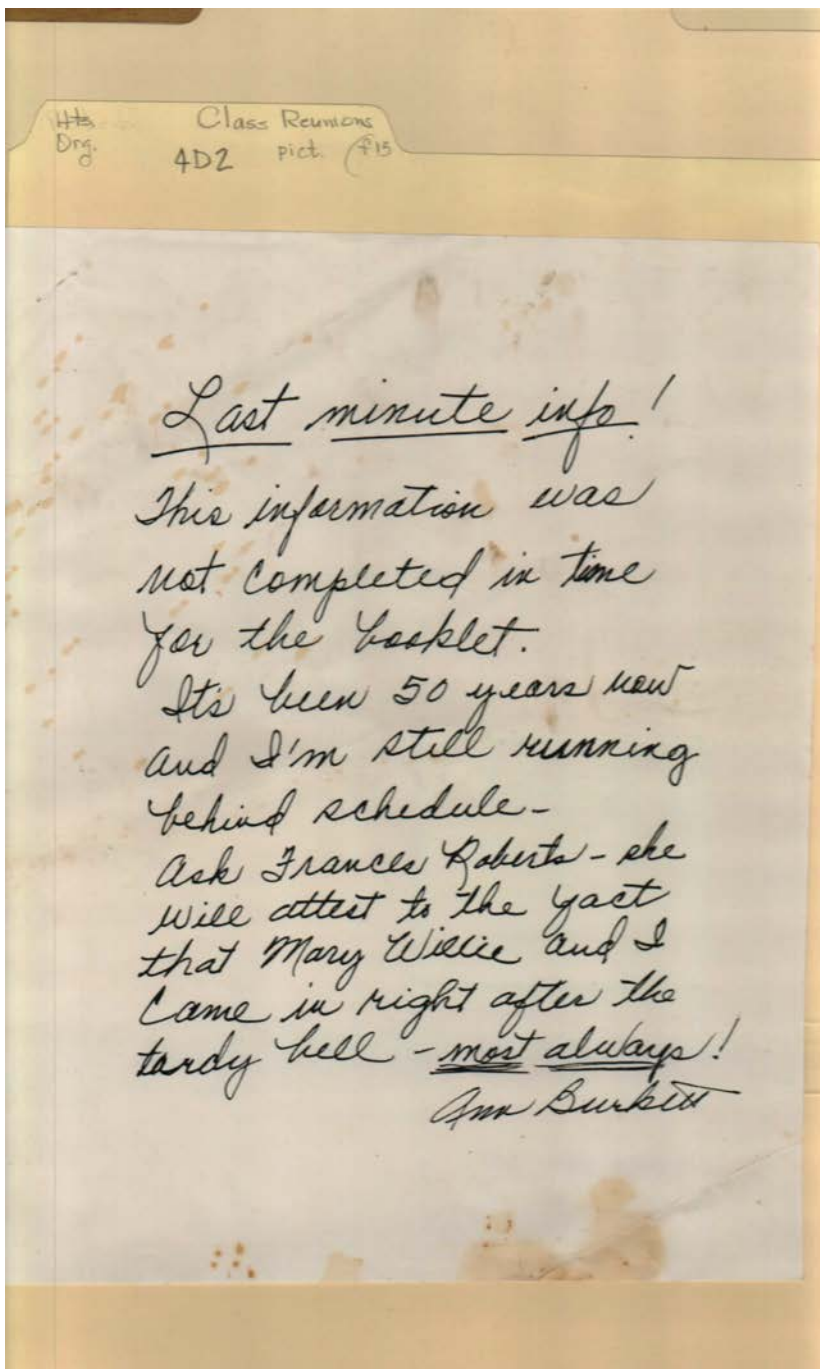 Class Reunions
Org.
4D2 pict.
Last minute info!
This information was
not completed in time
for the booklet.
It's been 50 years now
and I'm still running
behind schedule-
Ask Frances Roberts - she
will attest to the fact
that Mary Willie and I
came in right after the
tardy bell - most always!
Ann Burkett